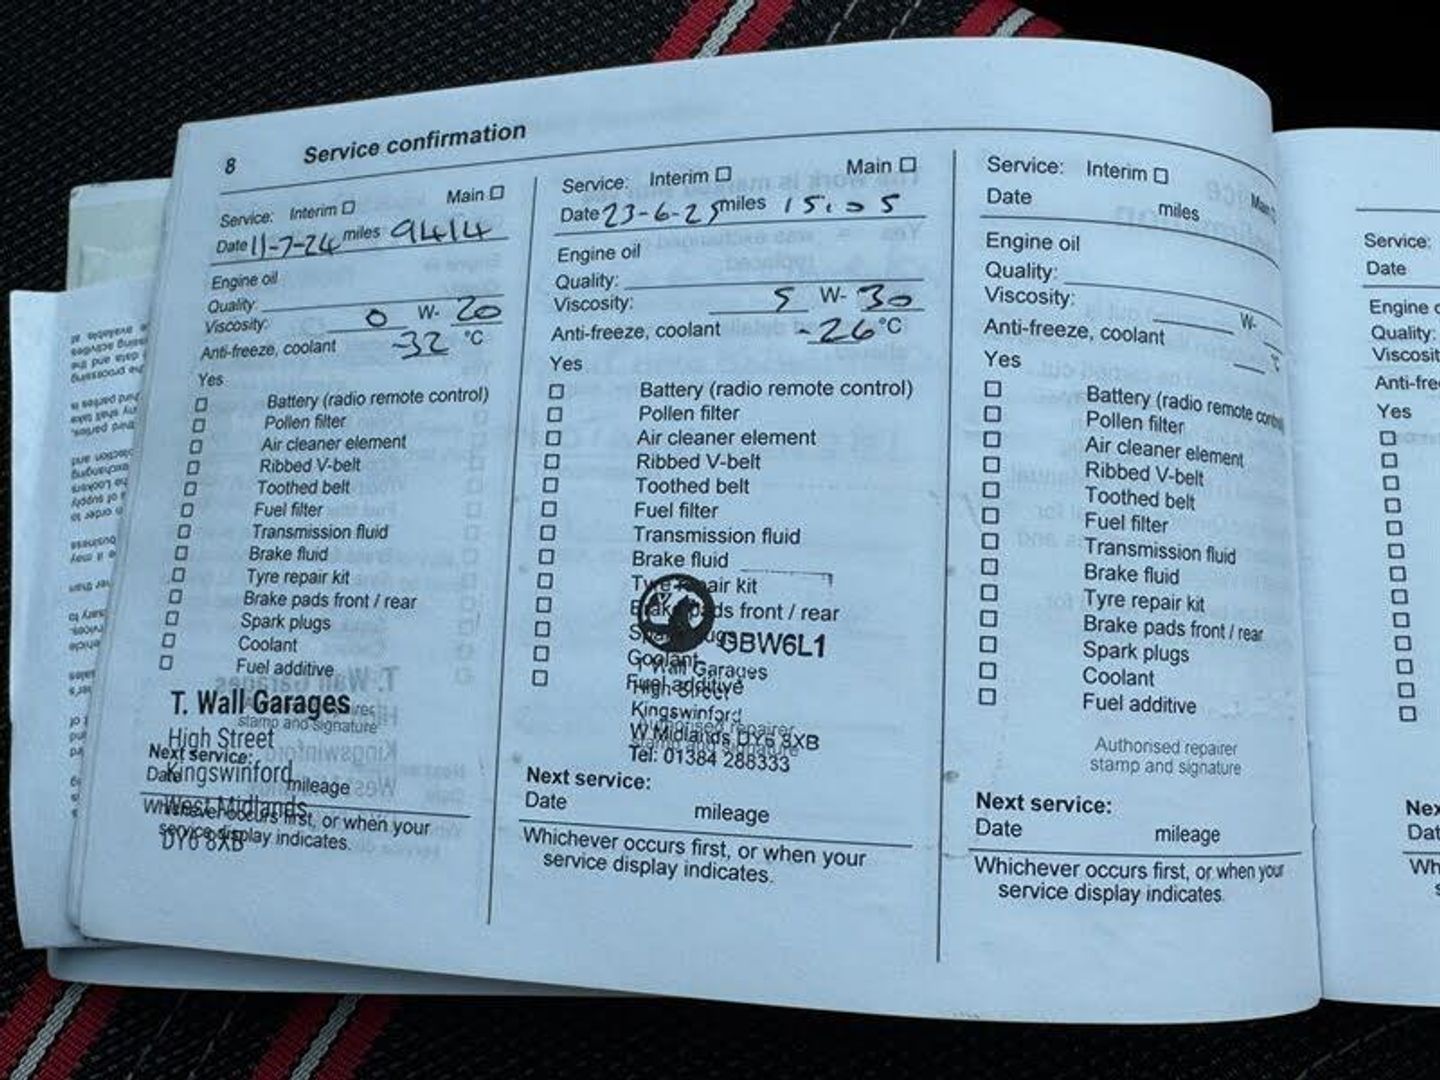 8 Service confirmation
Service: Interim ☐ Main ☐
Date 11-7-24 miles 9414
Engine oil
Quality:
Viscosity: 0 W- 20
Anti-freeze, coolant -32 °C
Yes
☐ Battery (radio remote control)
☐ Pollen filter
☐ Air cleaner element
☐ Ribbed V-belt
☐ Toothed belt
☐ Fuel filter
☐ Transmission fluid
☐ Brake fluid
☐ Tyre repair kit
☐ Brake pads front / rear
☐ Spark plugs
☐ Coolant
☐ Fuel additive
T. Wall Garages
stamp and signature
High Street
Next service:
Kingswinford
Date mileage
West Midlands
Whichever occurs first, or when your
service display indicates.
DY6 8XB
Service: Interim ☐ Main ☐
Date 23-6-25 miles
Engine oil
Quality:
Viscosity: 5 W- 30
Anti-freeze, coolant -26 °C
Yes
☐ Battery (radio remote control)
☐ Pollen filter
☐ Air cleaner element
☐ Ribbed V-belt
☐ Toothed belt
☐ Fuel filter
☐ Transmission fluid
☐ Brake fluid
☐ Tyre repair kit
☐ Brake pads front / rear
☐ Spark plugs
GBW6L1
☐ Coolant
T Wall Garages
☐ Fuel additive
High Street
Kingswinford
Authorised repairer
W Midlands DY6 8XB
stamp and signature
Tel: 01384 288333
Next service:
Date mileage
Whichever occurs first, or when your
service display indicates.
Service: Interim ☐ Main
Date miles
Engine oil
Quality:
Viscosity: W-
Anti-freeze, coolant °C
Yes
☐ Battery (radio remote control)
☐ Pollen filter
☐ Air cleaner element
☐ Ribbed V-belt
☐ Toothed belt
☐ Fuel filter
☐ Transmission fluid
☐ Brake fluid
☐ Tyre repair kit
☐ Brake pads front / rear
☐ Spark plugs
☐ Coolant
☐ Fuel additive
Authorised repairer
stamp and signature
Next service:
Date mileage
Whichever occurs first, or when your
service display indicates.
Service:
Date
Engine
Quality:
Viscosit
Anti-fre
Yes
Nex
Dat
Wh